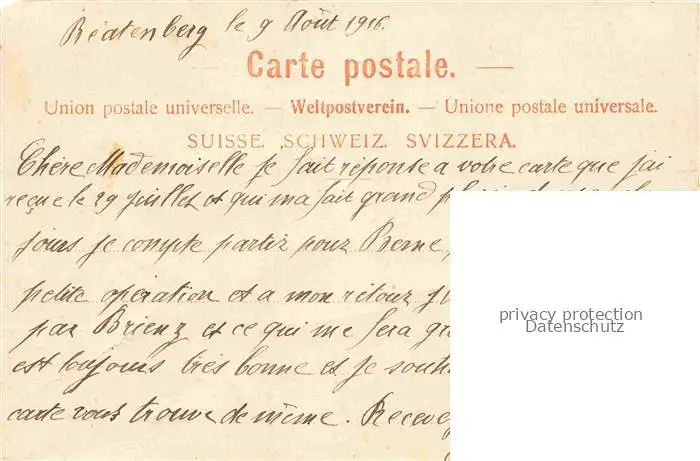 Béatenberg le 9 Août 1916.
Carte postale. —
Union postale universelle. — Weltpostverein. — Unione postale universale.
SUISSE. SCHWEIZ. SVIZZERA.
Chère Mademoiselle je fait réponse a votre carte que j'ai
reçue le 29 juillet et qui ma fait grand
jours je compte partir pour Berne
petite opération et a mon retour
par Brienz et ce qui me fera
est toujours très bonne et je
carte vous trouve de même.
privacy protection
Datenschutz